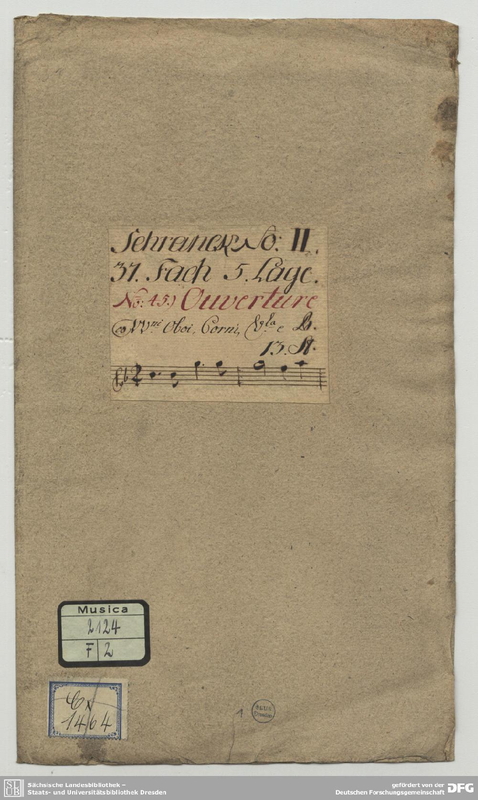 Schranck No: II.
37. Fach 5. Lage.
No: 45.) Ouverture
co VVni Oboi, Corni, Vla e B.
13. St.
Musica
2124
F 2
Cx
1464
1
Sächsische Landesbibliothek –
Staats- und Universitätsbibliothek Dresden
gefördert von der
Deutschen Forschungsgemeinschaft
DFG
SLUB